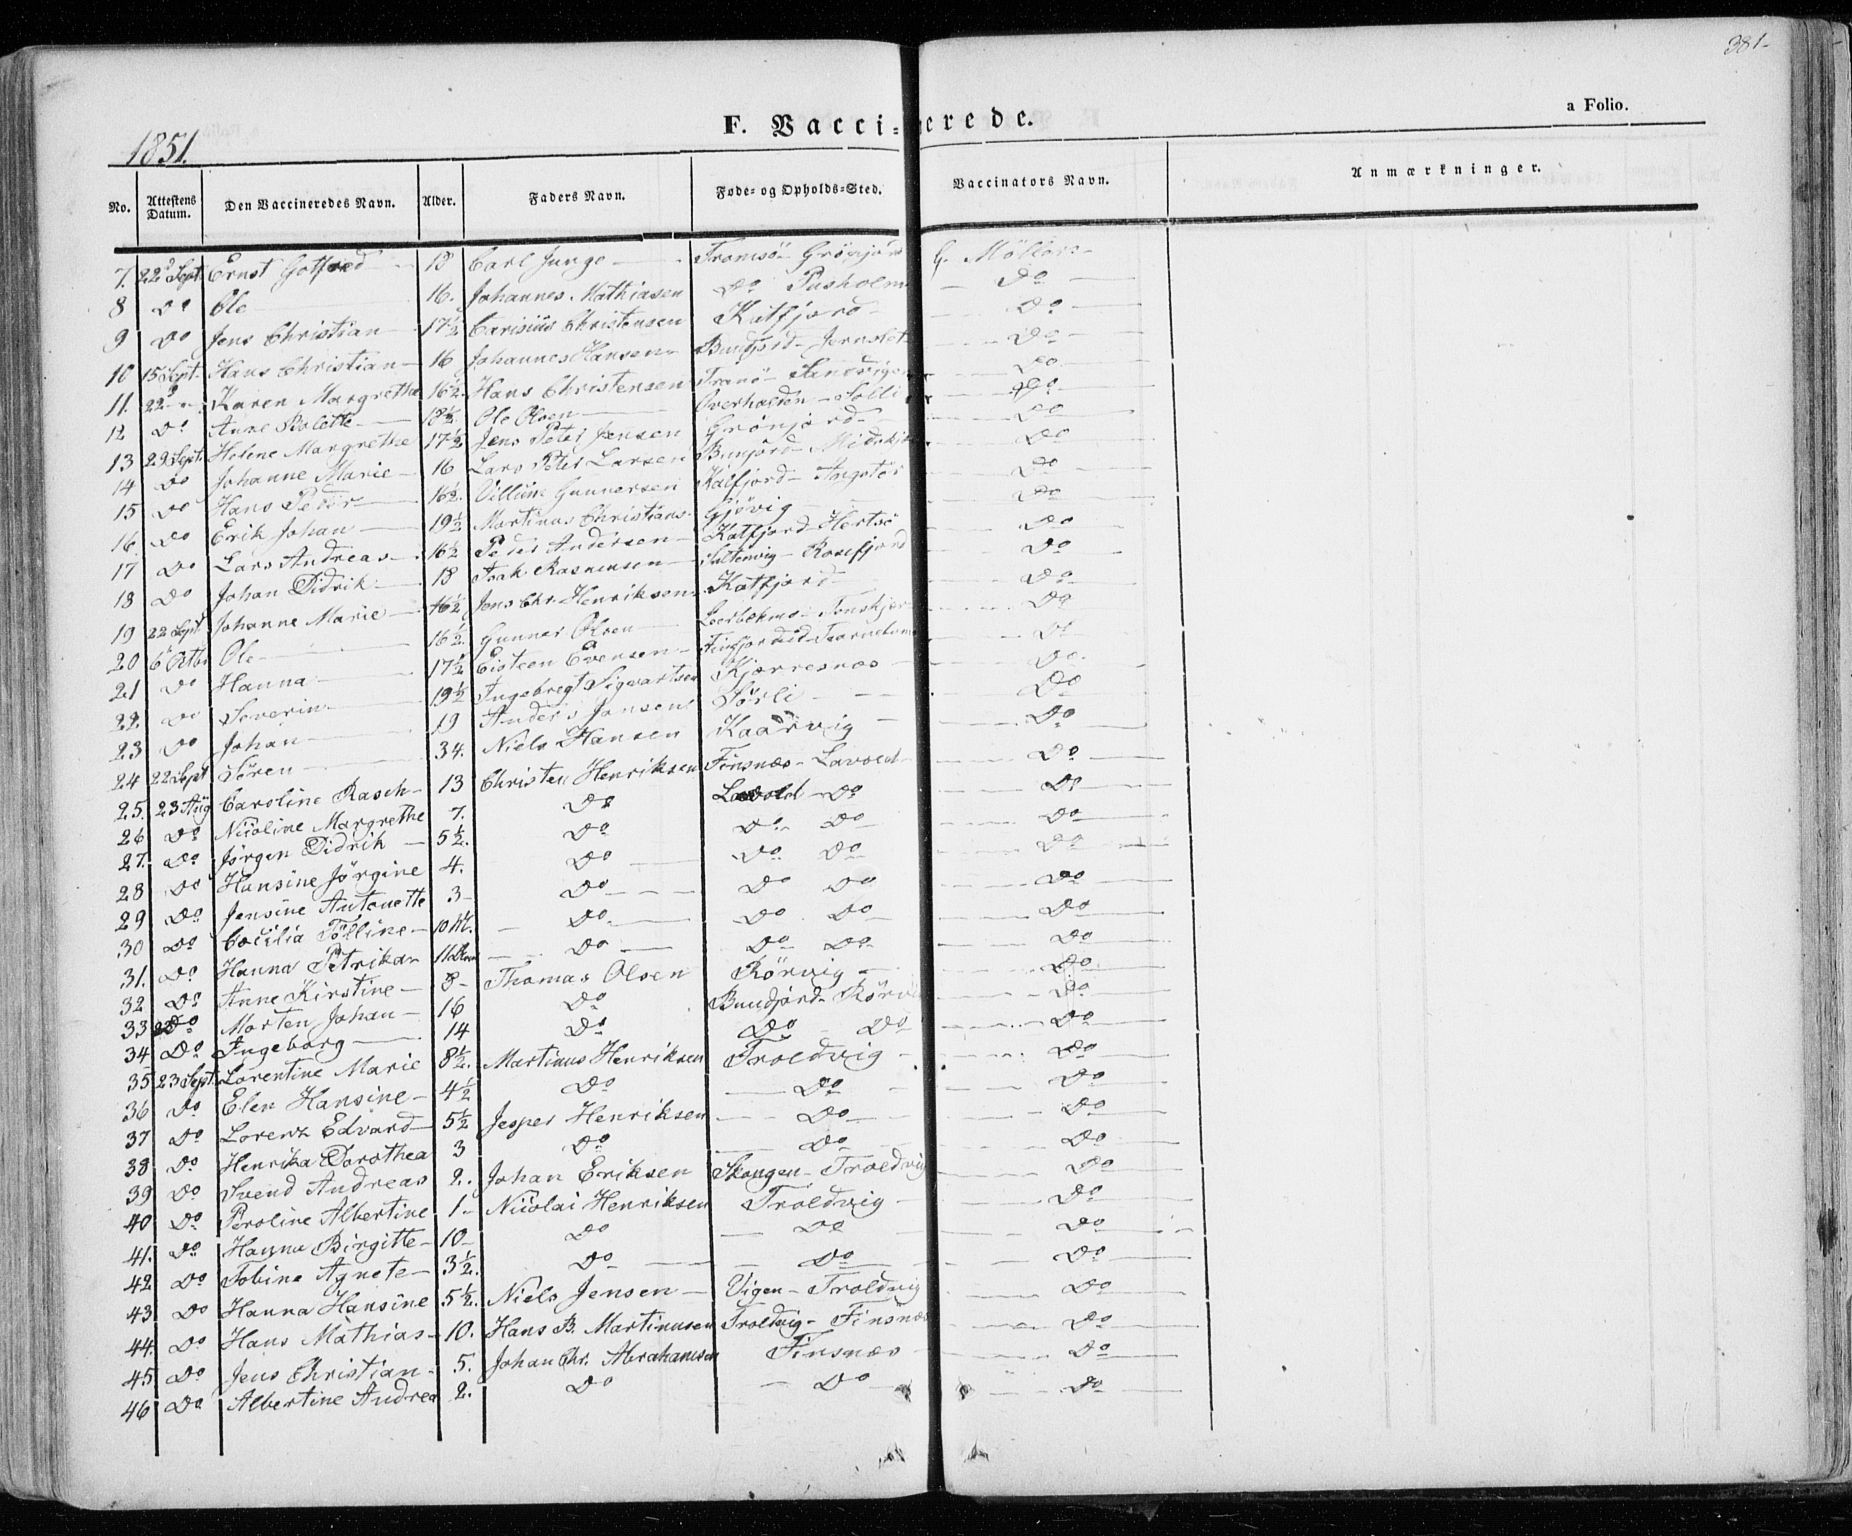 381-
F. Vaccinerede.
a Folio.
1851.
No. Attestens Datum. Den Vaccineredes Navn. Alder. Faders Navn. Føde- og Opholds-Sted. Vaccinators Navn. Anmærkninger.
7. 22 Sept. Ernst Gotfred 18 Carl Junge Tromsö - Grönjord G. Möller
8 Do Ole 16. Johannes Mathiasen Do Pusholm Do
9 Do Jens Christian 17½ Carisius Christensen Katfjord Do
10 15 Sept. Hans Christian 16 Johannes Hansen Bunfjord - Do
11. 22 Karen Margrethe 16½ Hans Christensen Tranö - Sandvigen Do
12 Do Anne Bolette 18½ Ole Olsen Overhalden - Solli Do
13 29 Sept. Helene Margrethe 17½ Jens Peter Jensen Grönjord Do
14 Do Johanne Marie 16 Lars Peter Larsen Bunjord - Do
15 Do Hans Peder 16½ Villum Gunnersen Kalfjord - Do
16 Do Erik Johan 19½ Martinus Christians. Gjövig Do
17 Do Lars Andreas 16½ Peder Andersen Katfjord - Hertsö Do
18 Do Johan Didrik 18 Isak Rasmusen - Rossfjord Do
19 22 Sept. Johanne Marie 16½ Jens Chr. Henriksen Katfjord Do
20 6 Octbr Ole 16½ Gunner Olsen Do
21 Do Hanna 17½ Eisteen Evensen Do
22. Do Severin 19½ Ingebregt Sigvartsen Kjærresnæs Do
23 Do Johan 19 Anders Jansen Sörli Do
24 22 Sept Sören 34. Niels Hansen Kaarvig Do
25. 23 Aug Caroline Rasch 13 Christen Henriksen Finsnæs - Lavold Do
26 Do Nicoline Margrethe 7. Do Lavold Do Do
27. Do Jørgen Didrik 5½. Do Do Do Do
28 Do Hansine Jørgine 4. Do Do Do Do
29 Do Jensine Antonette 3 - Do Do Do Do
30 Do Cæcilia Tölline 10 M. Do Do Do Do
31. Do Hanna Petrika 11 Do Do Do Do
32 Do Anne Kirstine 8 - Thomas Olsen Rörvig Do
33 Do Morten Johan 16 Do Bundjord - Rörvig Do
34 Do Ingeborg 14 Do Do - Do Do
35 23 Sept. Lorentine Marie 8½. Martinus Henriksen Troldvig Do
36 Do Elen Hansine 4½ Do Do Do
37 Do Lorenz Edvard 5½ Jesper Henriksen Do Do
38 Do Henrika Dorothea 3 Do Do Do
39 Do Svend Andreas 2. Johan Eriksen Skongen - Troldvig Do
40 Do Peroline Albertine 1 - Nicolai Henriksen Troldvig Do
41. Do Hanna Birgitte 10 Do Do Do
42 Do Tobine Agnete 3½. Do Do Do
43 Do Hanna Hansine 5½. Niels Jensen Vigen - Troldvig Do
44. Do Hans Mathias 10. Hans B. Martinusen Troldvig - Finsnæs Do
45 Do Jens Christian 5. Johan Chr. Abrahamsen Finsnæs Do
46 Do Albertine Andrea 2. Do Do Do